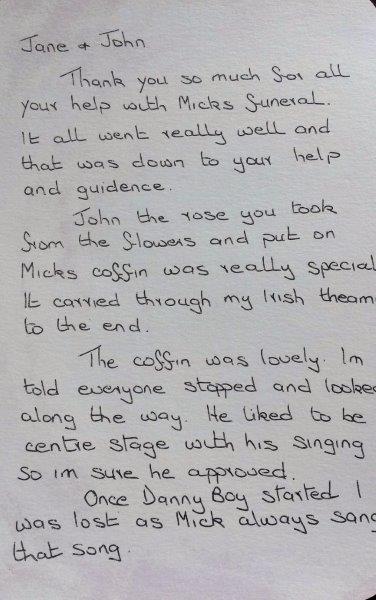 Jane + John
Thank you so much for all
your help with Micks funeral.
It all went really well and
that was down to your help
and guidence.
John the rose you took
from the flowers and put on
Micks coffin was really special
It carried through my Irish theam
to the end.
The coffin was lovely. Im
told everyone stopped and looked
along the way. He liked to be
centre stage with his singing
so im sure he approved.
Once Danny Boy started I
was lost as Mick always sang
that song.